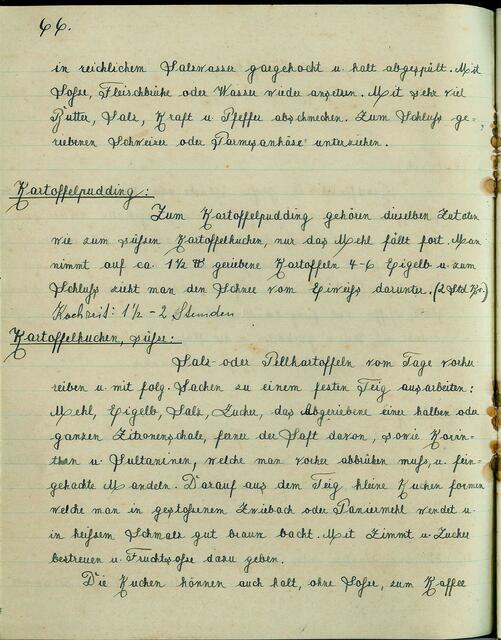 66.
in reichlichem Salzwasser gargekocht u. kalt abgespült. Mit
Soße, Fleischbrühe oder Wasser wieder ansetzen. Mit sehr viel
Butter, Salz, Kraft u Pfeffer abschmecken. Zum Schluß ge-
riebenen Schweizer oder Parmesankäse unterziehen.
Kartoffelpudding:
Zum Kartoffelpudding gehören dieselben Zutaten
wie zum süßsen Kartoffelkuchen, nur das Mehl fällt fort. Man
nimmt auf ca. 1½ ℔ geriebene Kartoffeln 4-6 Eigelb u. zum
Schluß zieht man den Schnee vom Eiweiß darunter. (2 Std Kz.)
Kochzeit: 1½ - 2 Stunden
Kartoffelkuchen, süßse:
Salz- oder Pellkartoffeln vom Tage vorher
reiben u. mit folg. Sachen zu einem festen Teig ausarbeiten:
Mehl, Eigelb, Salz, Zucker, das Abgeriebene einer halben oder
ganzen Zitronenschale, ferner der Saft davon, sowie Korin-
then u Sultaninen, welche man vorher abbrühen muß, u. fein-
gehackte Mandeln. Darauf aus dem Teig kleine Kuchen formen
welche man in gestoßenem Zwieback oder Paniermehl wendet u.
in heißem Schmalz gut braun backt. Mit Zimmt u. Zucker
bestreuen u. Fruchtsoße dazu geben.
Die Kuchen können auch kalt, ohne Soße, zum Kaffee